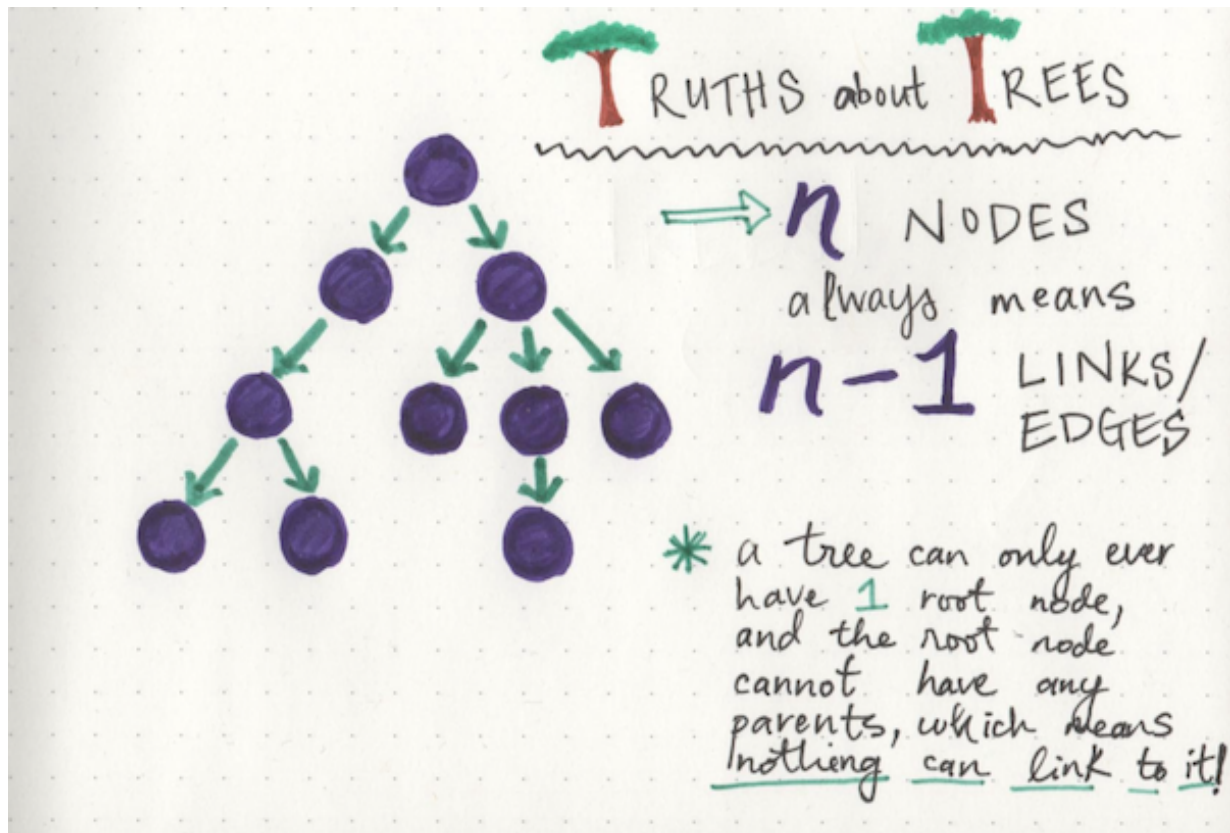 TRUTHS about TREES
n NODES
always means
n-1 LINKS/
EDGES
* a tree can only ever
have 1 root node,
and the root node
cannot have any
parents, which means
nothing can link to it!